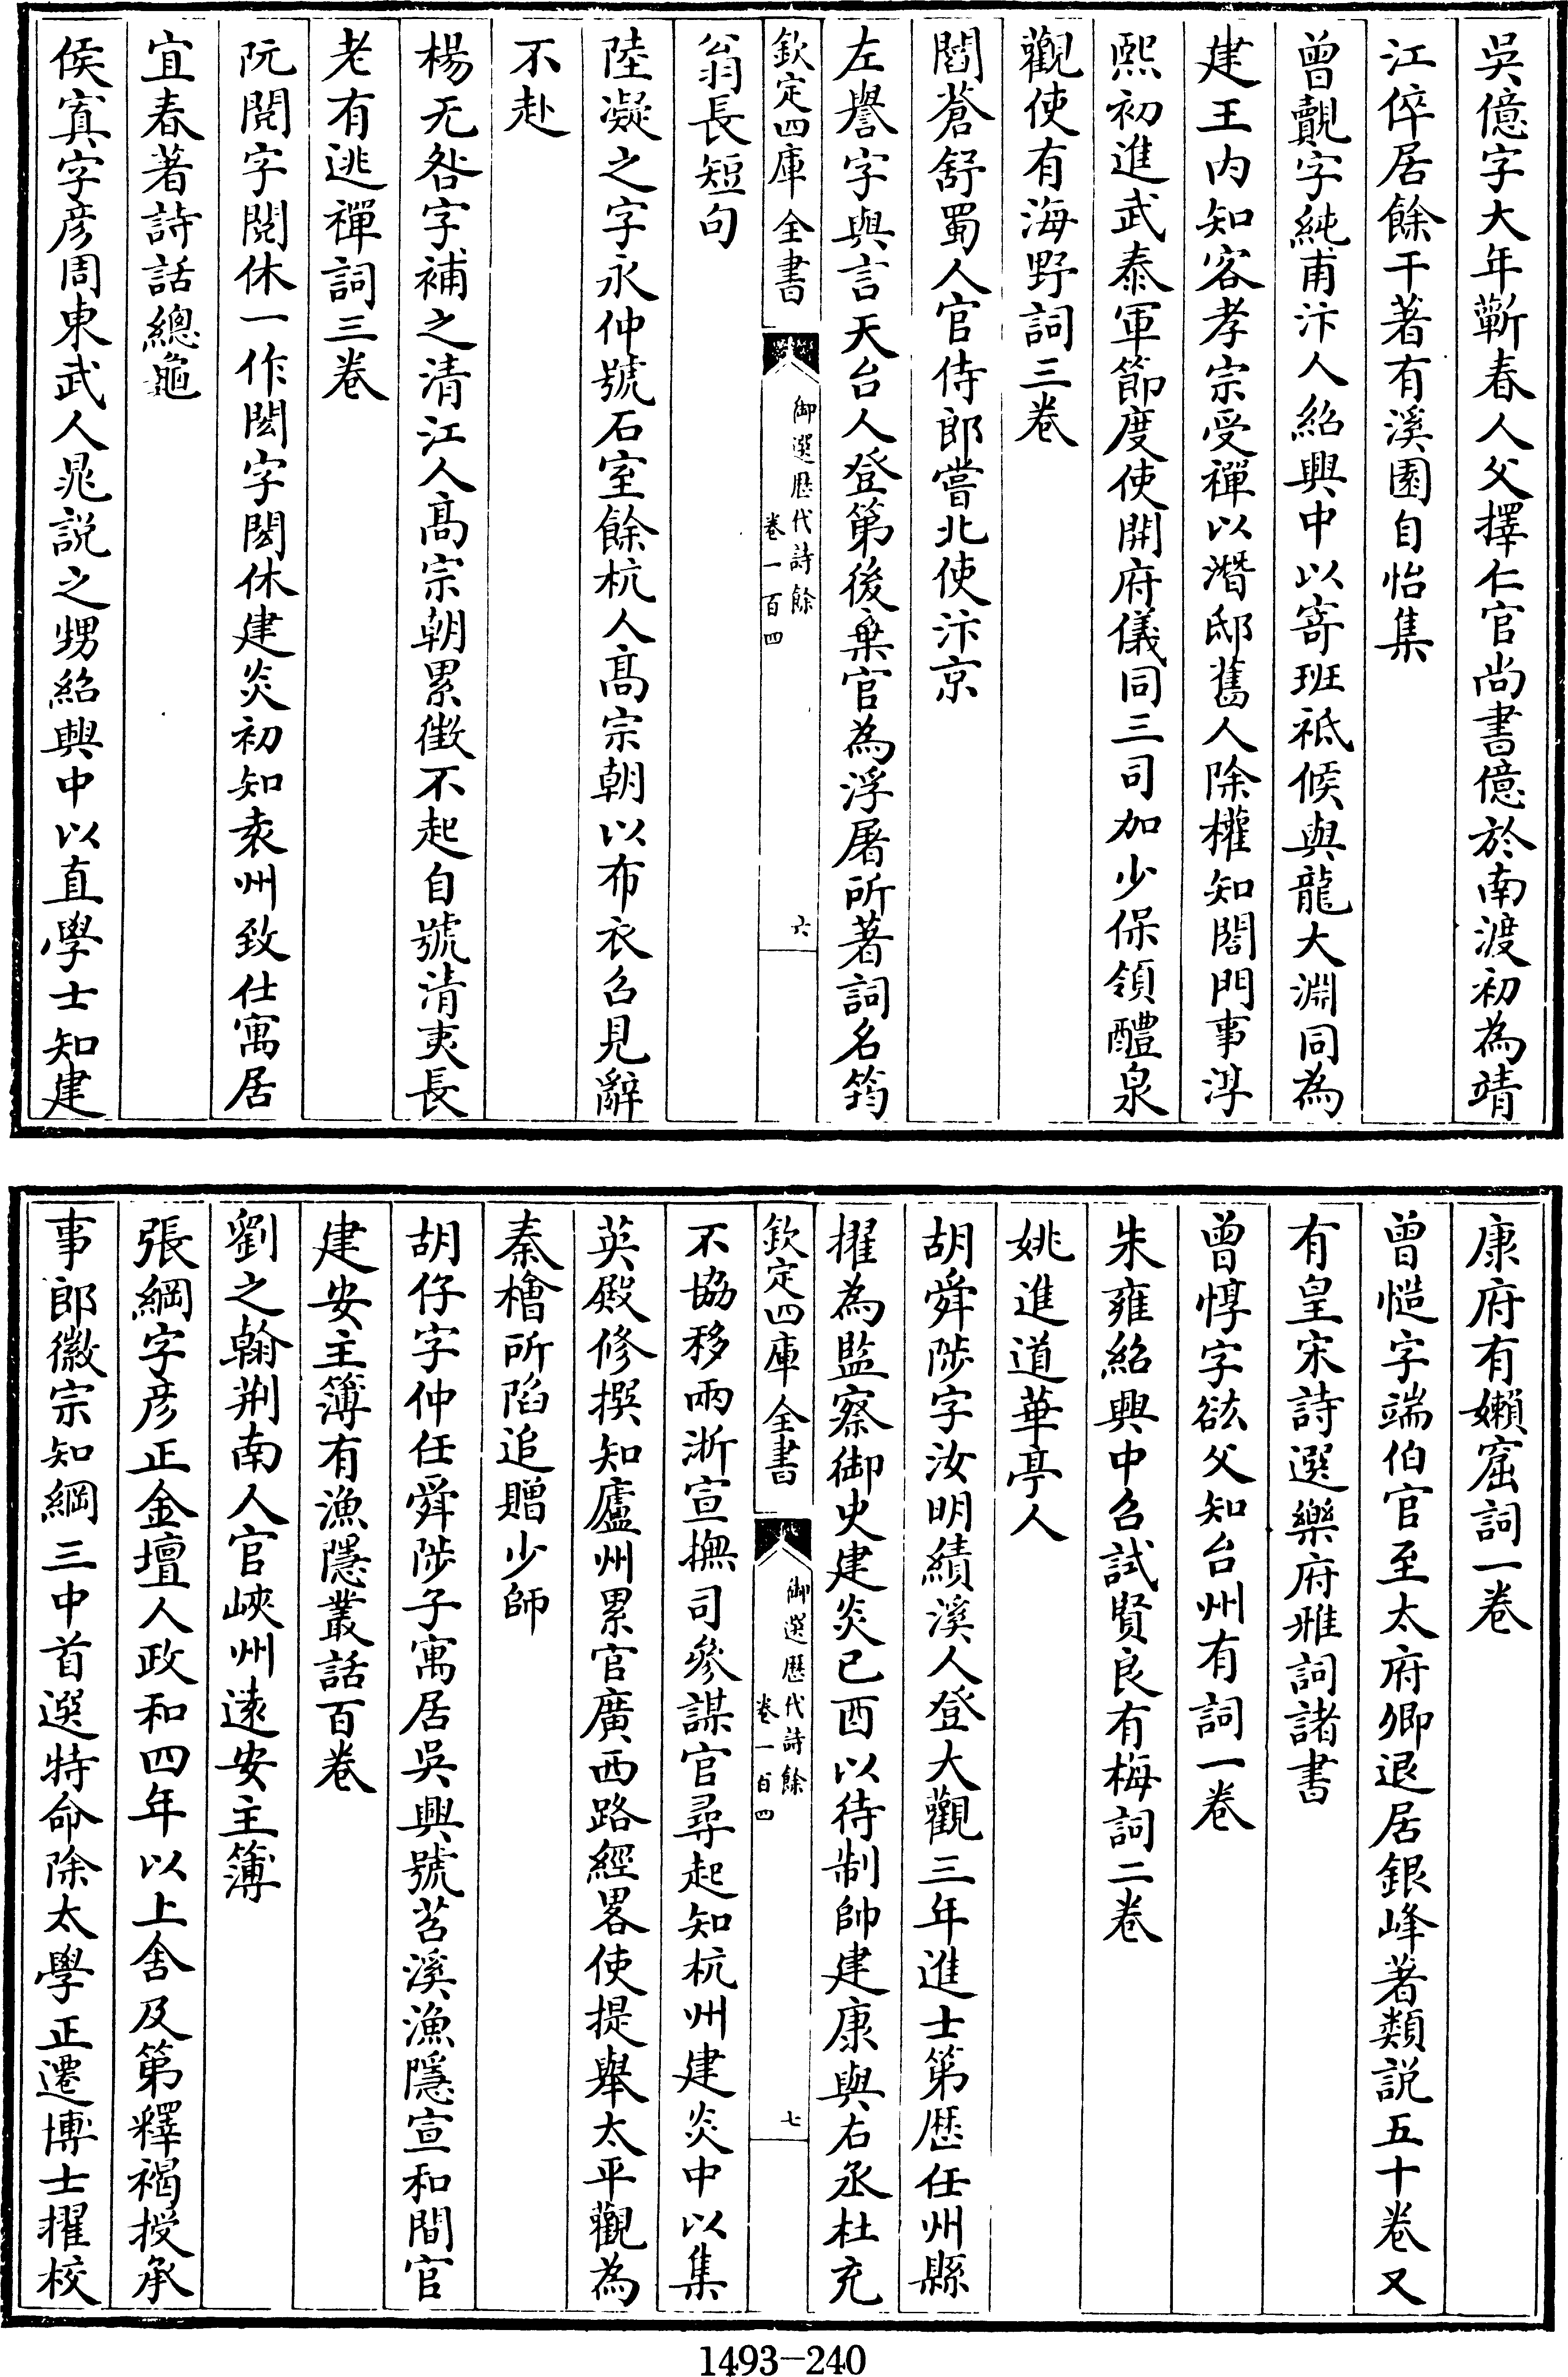 吳億字大年蘄春人父擇仁官尚書億於南渡初為靖
江倅居餘干著有溪園自怡集
曾覿字純甫汴人紹興中以寄班祗候與龍大淵同為
建王内知客孝宗受禪以潛邸舊人除權知閤門事淳
熙初進武泰軍節度使開府儀同三司加少保領醴泉
觀使有海野詞三卷
閻蒼舒蜀人官侍郎嘗北使汴京
左譽字與言天台人登第後棄官為浮屠所著詞名筠
欽定四庫全書
御選歷代詩餘
卷一百四
六
翁長短句
陸凝之字永仲號石室餘杭人髙宗朝以布衣召見辭
不赴
楊无咎字補之清江人髙宗朝累徵不起自號清夷長
老有逃禪詞三卷
阮閱字閱休一作閎字閎休建炎初知袁州致仕寓居
宜春著詩話總龜
侯寘字彦周東武人晁説之甥紹興中以直學士知建
康府有嬾窟詞一卷
曾慥字端伯官至太府卿退居銀峰著類説五十卷又
有皇宋詩選樂府雅詞諸書
曾惇字谹父知台州有詞一卷
朱雍紹興中召試賢良有梅詞二卷
姚進道華亭人
胡舜陟字汝明績溪人登大觀三年進士第歷任州縣
擢為監察御史建炎已酉以待制帥建康與右丞杜充
欽定四庫全書
御選歷代詩餘
卷一百四
七
不協移兩浙宣撫司參謀官尋起知杭州建炎中以集
英殿修撰知廬州累官廣西路經畧使提舉太平觀為
秦檜所陷追贈少師
胡仔字仲任舜陟子寓居吳興號苕溪漁隱宣和間官
建安主簿有漁隱叢話百卷
劉之翰荆南人官峽州遠安主簿
張綱字彦正金壇人政和四年以上舍及第釋褐授承
事郎徽宗知綱三中首選特命除太學正遷博士擢校
1493-240